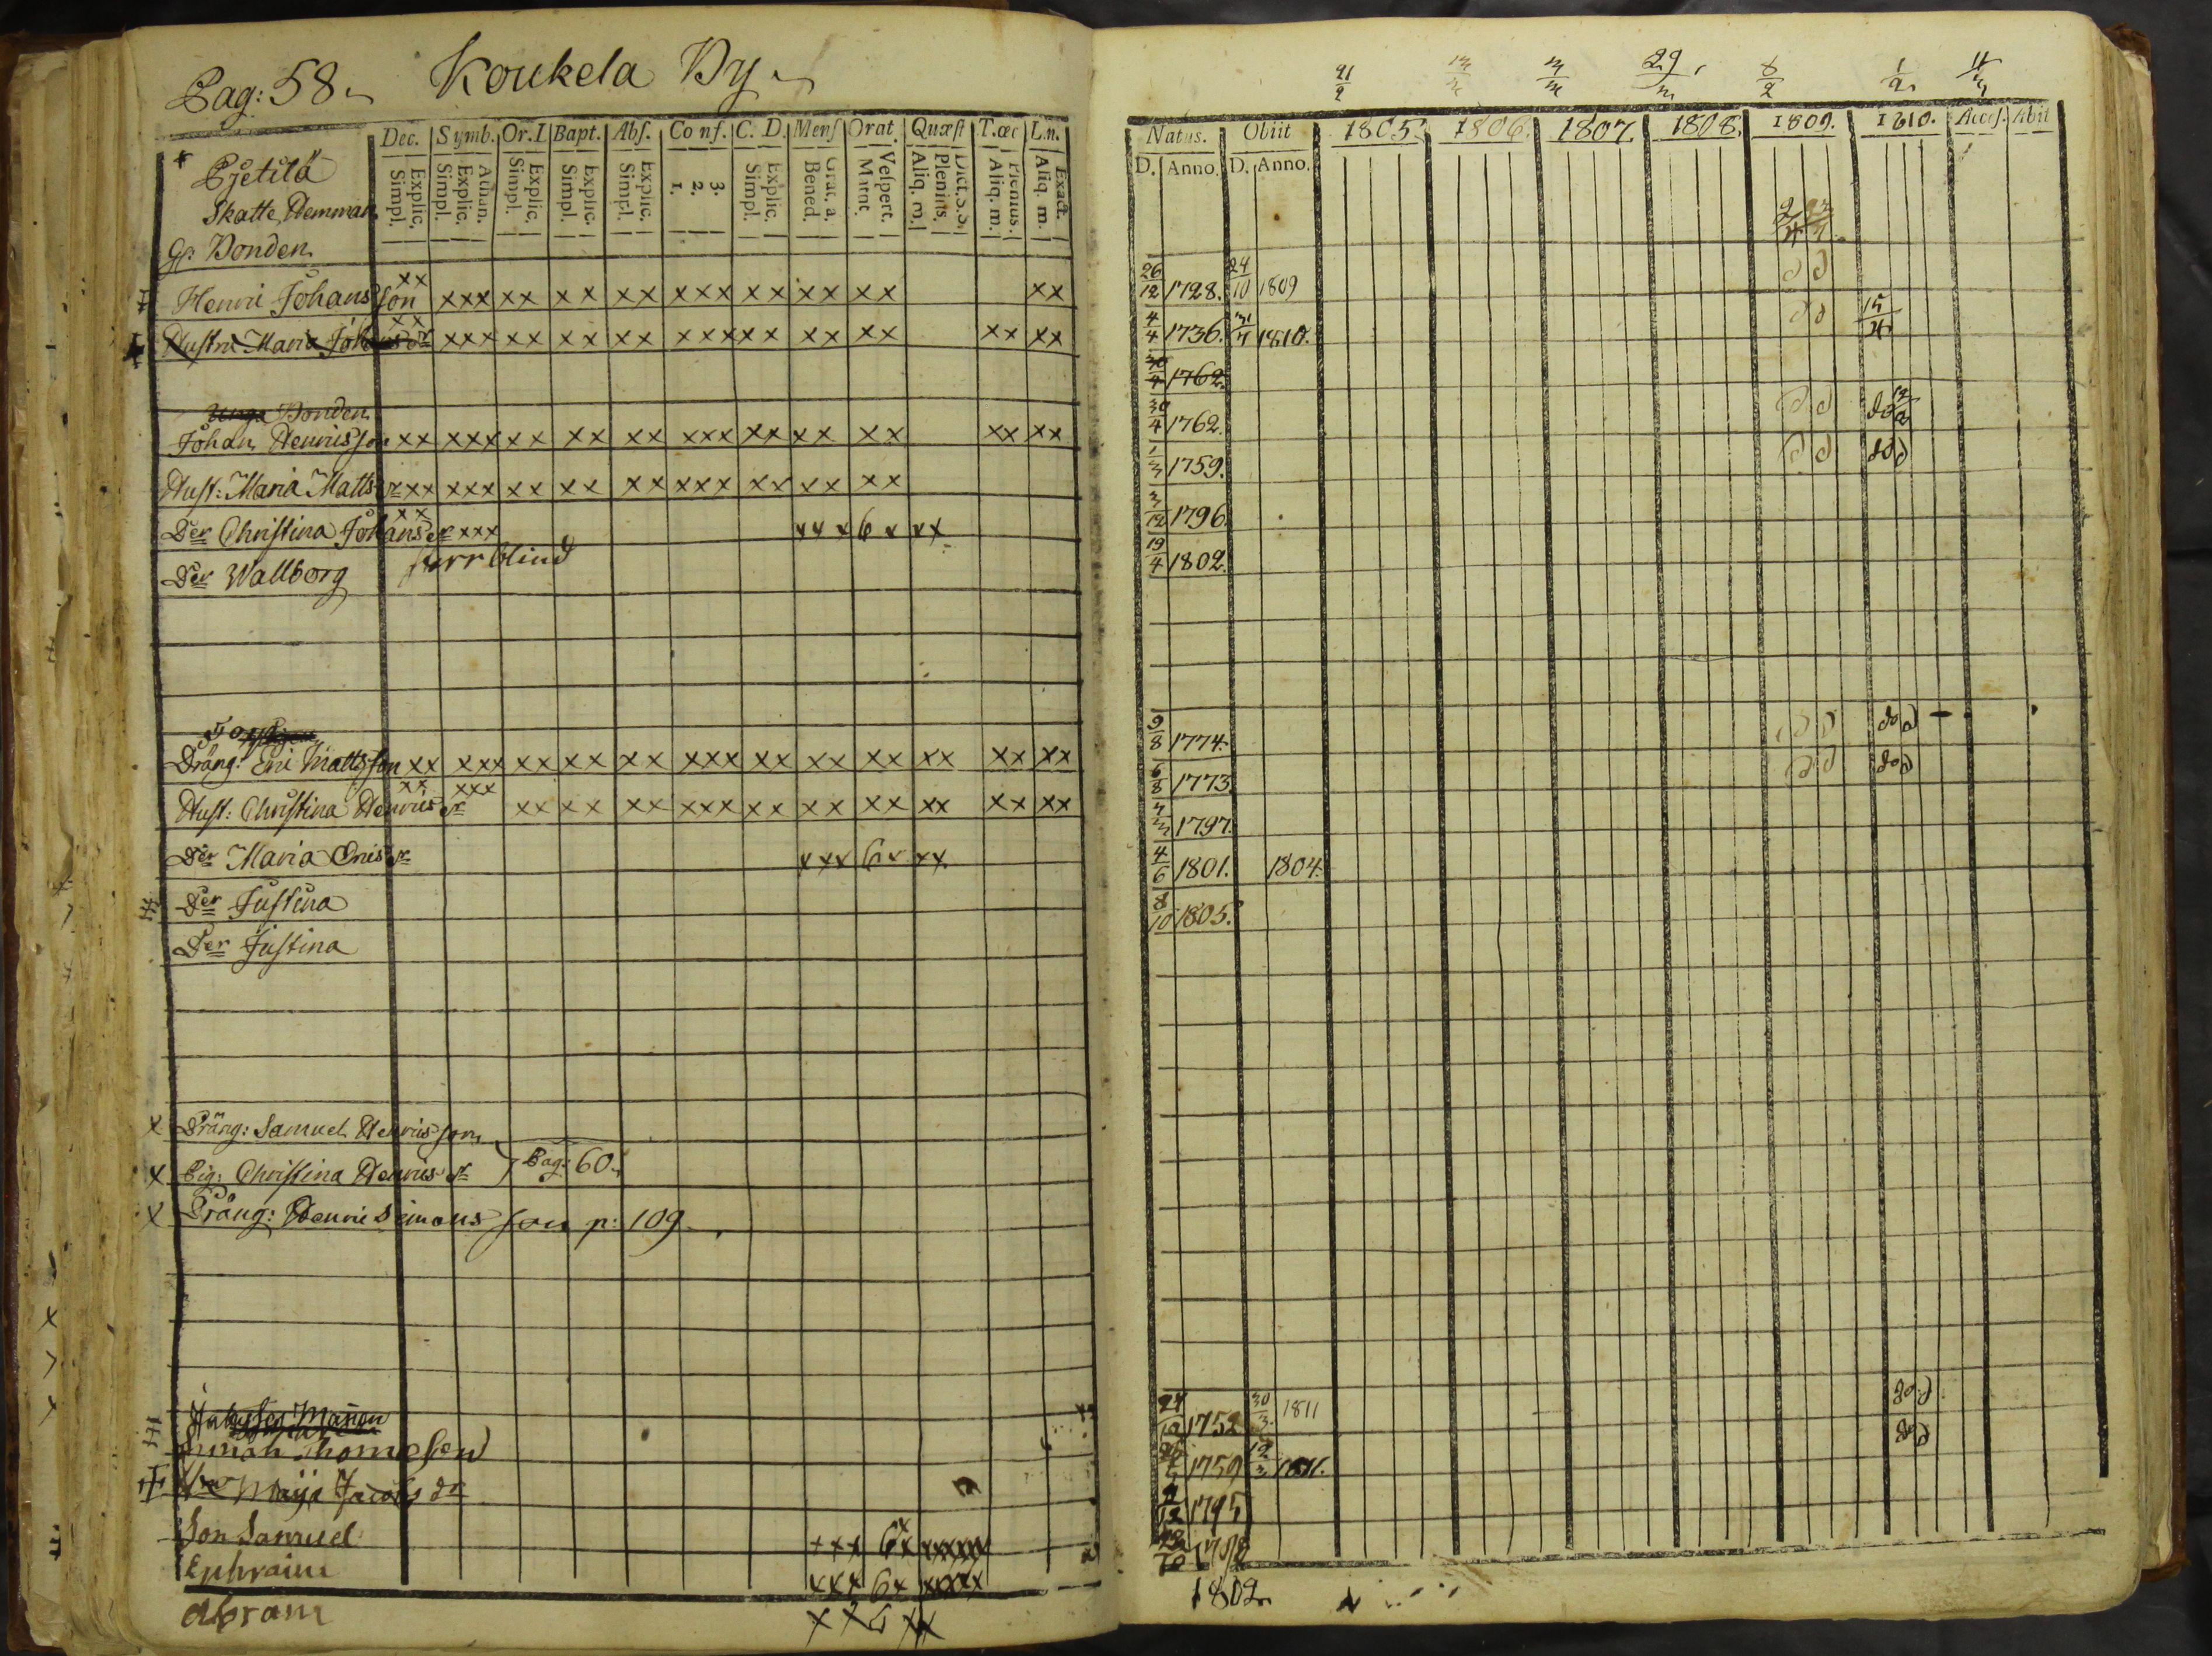 Pag: 58. Koukela By
Dec. Symb. Or.I Bapt. Abſ. Conf. C. D. Menſ Orat. Quæſt T.œc L.n.
Explic. Simpl. Athan. Explic. Simpl. Explic. Simpl. Explic. Simpl. Explic. Simpl. 3. 2. 1. Explic. Simpl. Grat. a. Bened. Veſpert. Matut. Dict.S.S. Plenius. Aliq. m. Plenius. Aliq. m. Exact. Aliq. m.
Pjetilä
Skatte Hemman
G: Bonden
Henric Johansson xx xxx xx xx xx xxx xx xx xx xx
Hustru Maria Johans dr xx xxx xx xx xx xxx xx xx xx xx xx
Unga Bonden
Johan Henricsson xx xxx xx xx xx xxx xx xx xx xx xx
Hust: Maria Matts dr xx xxx xx xx xx xxx xx xx xx
Der Christina Johans dr xx xxx xx x 6 x xx
Der Wallborg blind
Dräng: Eric Mattsson xx xxx xx xx xx xxx xx xx xx xx xx xx
Hust: Christina Henrics dr xx xxx xx xx xx xxx xx xx xx xx xx xx
Der Maria Erics dr xxx 6x xx
Der Justina
Der Justina
x Dräng: Samuel Henricsson
x Pig: Christina Henrics dr Pag: 60.
x Dräng: Henric Simonsson p: 109.
Thomasson
Maija Jacobs dr
Son Samuel xxx 6x
Ephraim xxx 6x
Abram
21/2 29/ 8/2 1/2
Natus. Obiit 1805. 1806. 1807. 1808. 1809. 1810. Acceſ. Abiit
D. Anno. D. Anno.
26/12 1728. 24/10 1809
4/4 1736. 31/ 1810. 15/
1762.
30/4 1762.
1/3 1759.
3/12 1796.
19/4 1802.
9/8 1774.
6/8 1773.
1797.
4/6 1801. 1804.
8/10 1805.
1752 30/3 1811
1759 12/3 1811.
1795
1802.